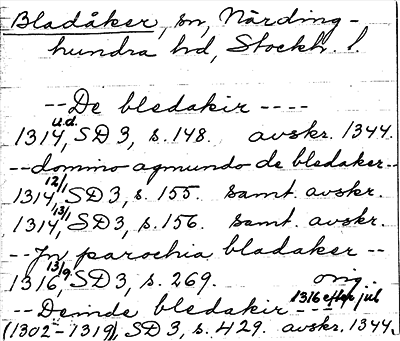 Bladåker, sn, Närding-
hundra hd, Stockh. l.
--De bledakir----
1314 u.d., SD 3, s. 148. avskr. 1344.
--domino agmundo de bledaker--
1314 12/1, SD 3, s. 155. samt. avskr.
1314 13/1, SD 3, s. 156. samt. avskr.
--Jn parochia bladaker--
1316 13/9, SD 3, s. 269. orig.
--Deinde bledakir---
1316 efter jul
(1302-1319), SD 3, s. 429. avskr. 1344.